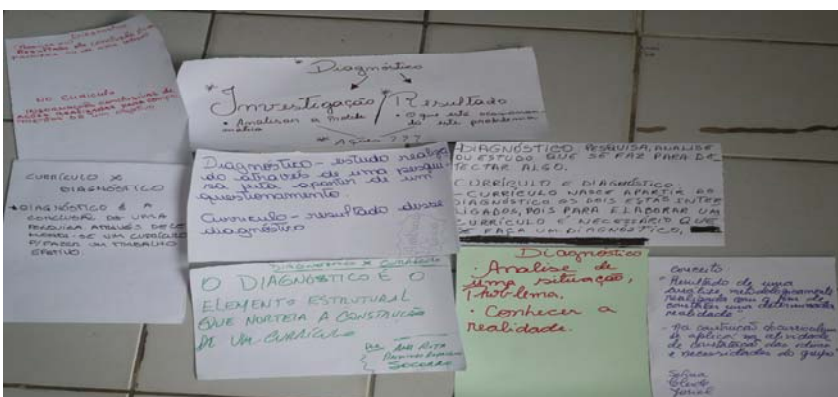 Diagnóstico
Resultado de conclusão
NO CURRICULO
* Diagnóstico
* Investigação / Resultado
• Analisar a
• O que está
* Ações ???
CURRÍCULO X
DIAGNÓSTICO
DIAGNÓSTICO É A
CONCLUSÃO DE UMA
PESQUISA ATRAVÉS
UM CURRÍCULO
P/FAZER UM TRABALHO
EFETIVO.
Diagnóstico - estudo realiza
do através de uma pesqui-
sa feita apartir de um
questionamento.
Curriculo - resultado desse
diagnóstico
DIAGNÓSTICO: PESQUISA, ANALISE
OU ESTUDO QUE SE FAZ PARA DE
TECTAR ALGO.
CURRÍCULO E DIAGNÓSTICO
- CURRICULO NASCE APARTIR DO
DIAGNÓSTICO OS DOIS ESTÃO INTER
LIGADOS, POIS PARA ELABORAR UM
CURRÍCULO É NECESSÁRIO QUE
SE FAÇA UM DIAGNÓSTICO,
DIAGNÓSTICO X CURRÍCULO
O DIAGNÓSTICO É O
ELEMENTO ESTRUTURAL
QUE NORTEIA A CONSTRUÇÃO
DE UM CURRÍCULO
ANA RITA
SOCORRO
Diagnóstico
• Analise de
uma situação,
Problema.
• Conhecer a
realidade.
conceito:
Resultado de uma
analize, metodologicamente
realizada com o fim de
constatar uma determinada
realidade
- Na construção
se aplica na atividade
de constatação das ideias
e necessidades do grupo